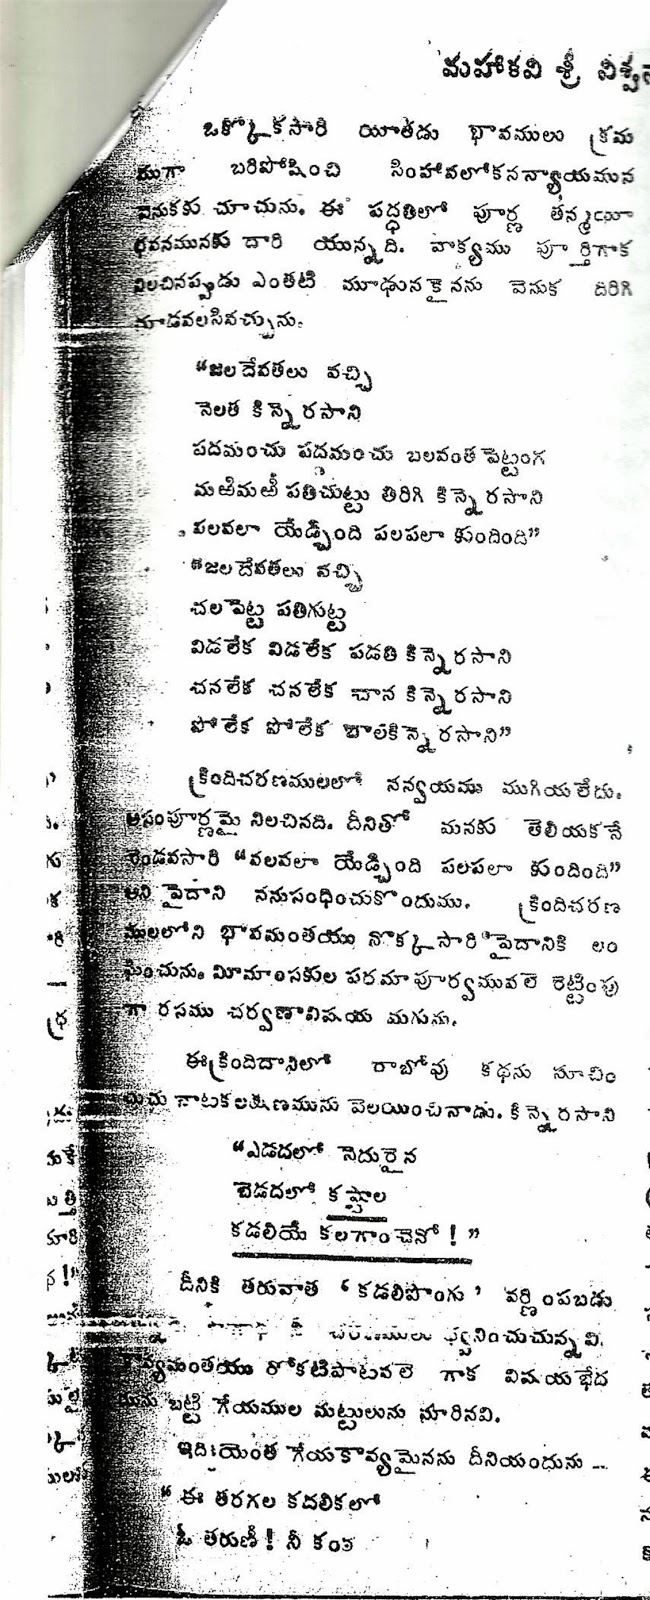 మహాకవి శ్రీ విశ్వ
ఒక్కొకసారి యీతడు భావములు క్రమ
ముగా బరిపోషించి సింహావలోకనన్యాయమున
వెనుకకు చూచును. ఈ పద్ధతిలో పూర్ణ తన్మయీ
భవనమునకు దారి యున్నది. వాక్యము పూర్తిగాక
నిలచినప్పుడు ఎంతటి మూఢునకైనను వెనుక దిరిగి
చూడవలసివచ్చును.
“జలదేవతలు వచ్చి
నెలత కిన్నెరసాని
పదమంచు పద్మమంచు బలవంతపెట్టంగ
మఱిమఱీ పతిచుట్టు తిరిగి కిన్నెరసాని
వలవలా యేడ్చింది పలపలా కుందింది”
“జలదేవతలు వచ్చి
చలపెట్ట పతిగుట్ట
విడలేక విడలేక పడతి కిన్నెరసాని
చనలేక చనలేక చాన కిన్నెరసాని
పోలేక పోలేక బాలకిన్నెరసాని”
క్రిందిచరణములలో నన్వయము ముగియలేదు.
అసంపూర్ణమై నిలచినది. దీనితో మనకు తెలియకనే
రెండవసారి “వలవలా యేడ్చింది పలపలా కుందింది”
అని పైదాని ననుసంధించుకొందుము. క్రిందిచరణ
ములలోని భావమంతయు నొక్కసారి పైదానికి లం
ఘించును. మీమాంసకుల పరమాపూర్వమువలె రెట్టింపు
గా రసము చర్వణావిషయ మగును.
ఈక్రిందిదానిలో రాబోవు కథను సూచిం
చుచు నాటకలక్షణమును వెలయించినాడు. కిన్నెరసాని
“ఎడదలో నెదురైన
బెడదలో కష్టాల
కడలియే కలగాంచెనో!”
దీనికి తరువాత ‘కడలిపొంగు’ వర్ణింపబడు
చరణములు ధ్వనించుచున్నవి.
కావ్యమంతయు రోకటిపాటవలె గాక విషయభేద
మును బట్టి గేయముల మట్టులును మారినవి.
ఇది యెంత గేయకావ్యమైనను దీనియందును —
“ఈ తరగల కదలికలో
ఓ తరుణీ! నీ కంఠ